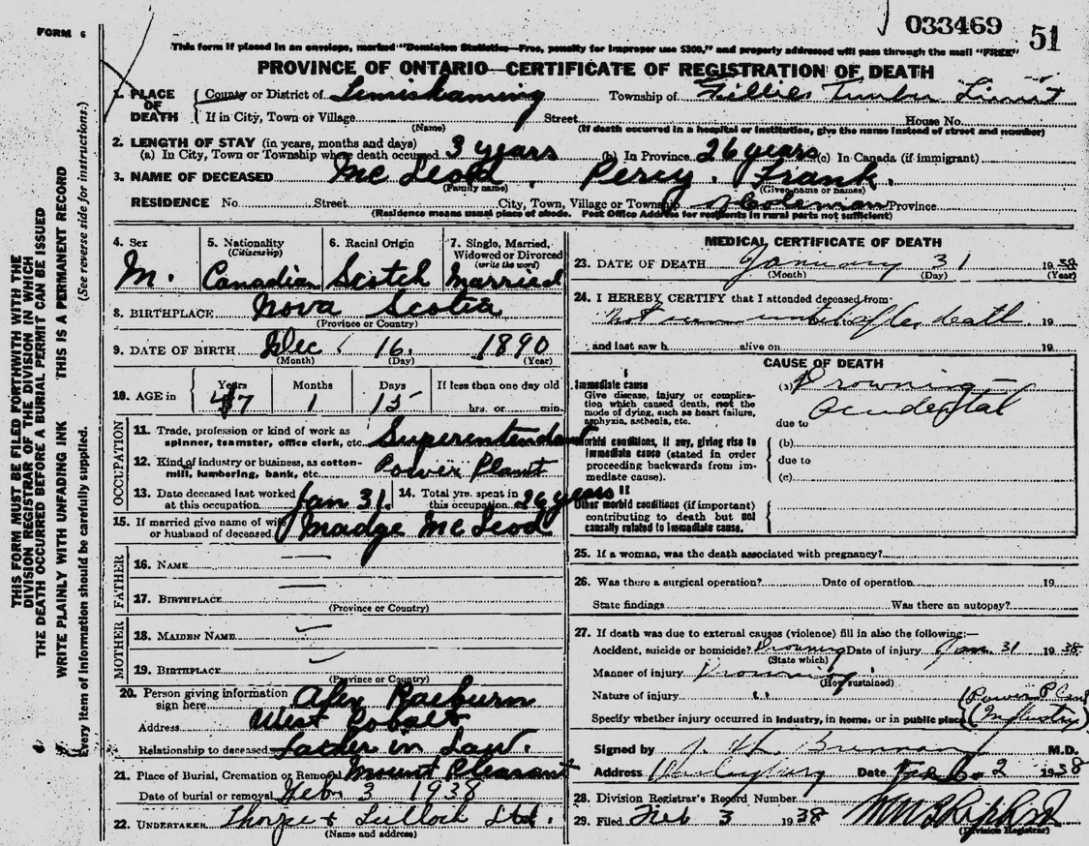 FORM 6
033469 51
This form if placed in an envelope, marked "Dominion Statistics—Free, penalty for improper use $300," and properly addressed will pass through the mail "FREE"
PROVINCE OF ONTARIO—CERTIFICATE OF REGISTRATION OF DEATH
1. PLACE OF DEATH
County or District of Temiskaming Township of Gillies Timber Limit
If in City, Town or Village Street House No.
(Name) (If death occurred in a hospital or institution, give the name instead of street and number)
2. LENGTH OF STAY (in years, months and days)
(a) In City, Town or Township where death occurred 3 years (b) In Province 26 years (c) In Canada (if immigrant)
3. NAME OF DECEASED McLeod. Percy. Frank.
(Family name) (Given name or names)
RESIDENCE No. Street City, Town, Village or Township of Coleman Province
(Residence means usual place of abode. Post Office Address for residents in rural parts not sufficient)
THIS FORM MUST BE FILED FORTHWITH WITH THE
DIVISION REGISTRAR OF THE DIVISION IN WHICH
THE DEATH OCCURRED BEFORE A BURIAL PERMIT CAN BE ISSUED
WRITE PLAINLY WITH UNFADING INK THIS IS A PERMANENT RECORD
Every item of information should be carefully supplied. (See reverse side for instructions.)
4. Sex
M.
5. Nationality
(Citizenship)
Canadian
6. Racial Origin
Scotch
7. Single, Married, Widowed or Divorced
(write the word)
Married
8. BIRTHPLACE Nova Scotia
(Province or Country)
9. DATE OF BIRTH Dec. 16. 1890
(Month) (Day) (Year)
10. AGE in
Years Months Days If less than one day old
47 1 15 hrs. or min.
OCCUPATION
11. Trade, profession or kind of work as spinner, teamster, office clerk, etc. Superintendant
12. Kind of industry or business, as cotton-mill, lumbering, bank, etc. Power Plant
13. Date deceased last worked at this occupation Jan 31.
14. Total yrs. spent in this occupation 26 years
15. If married give name of wife or husband of deceased Madge McLeod
FATHER
16. NAME —
17. BIRTHPLACE —
(Province or Country)
MOTHER
18. MAIDEN NAME
19. BIRTHPLACE
(Province or Country)
20. Person giving information sign here Alex Raeburn
Address West Cobalt
Relationship to deceased Father in Law.
21. Place of Burial, Cremation or Removal Mount Pleasant
Date of burial or removal Feb 3 1938
22. UNDERTAKER Thorpe & Tulloch Ltd.
(Name and address)
MEDICAL CERTIFICATE OF DEATH
23. DATE OF DEATH January 31 1938
(Month) (Day) (Year)
24. I HEREBY CERTIFY that I attended deceased from
Not seen until to after death 19
and last saw h alive on 19
CAUSE OF DEATH
Immediate cause
Give disease, injury or complication which caused death, not the mode of dying, such as heart failure, asphyxia, asthenia, etc.
(a) Drowning—
Accidental
due to
Morbid conditions, if any, giving rise to immediate cause (stated in order proceeding backwards from immediate cause).
(b)
due to
(c)
II
Other morbid conditions (if important) contributing to death but not causally related to immediate cause.
25. If a woman, was the death associated with pregnancy?
26. Was there a surgical operation? Date of operation 19
State findings Was there an autopsy?
27. If death was due to external causes (violence) fill in also the following:—
Accident, suicide or homicide? Drowning Date of injury Jan. 31 1938
(State which)
Manner of injury Drowning
(How sustained)
Nature of injury " Power Plant
Specify whether injury occurred in industry, in home, or in public place (Industry)
Signed by Brennan M.D.
Address Haileybury Date Feb. 2 1938
28. Division Registrar's Record Number
29. Filed Feb 3 1938
(Division Registrar)